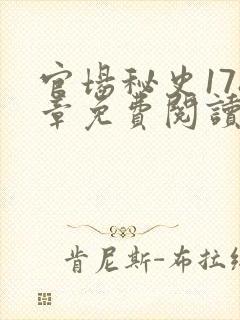 官場秘史17
章免費閱讀
肯尼斯-布拉